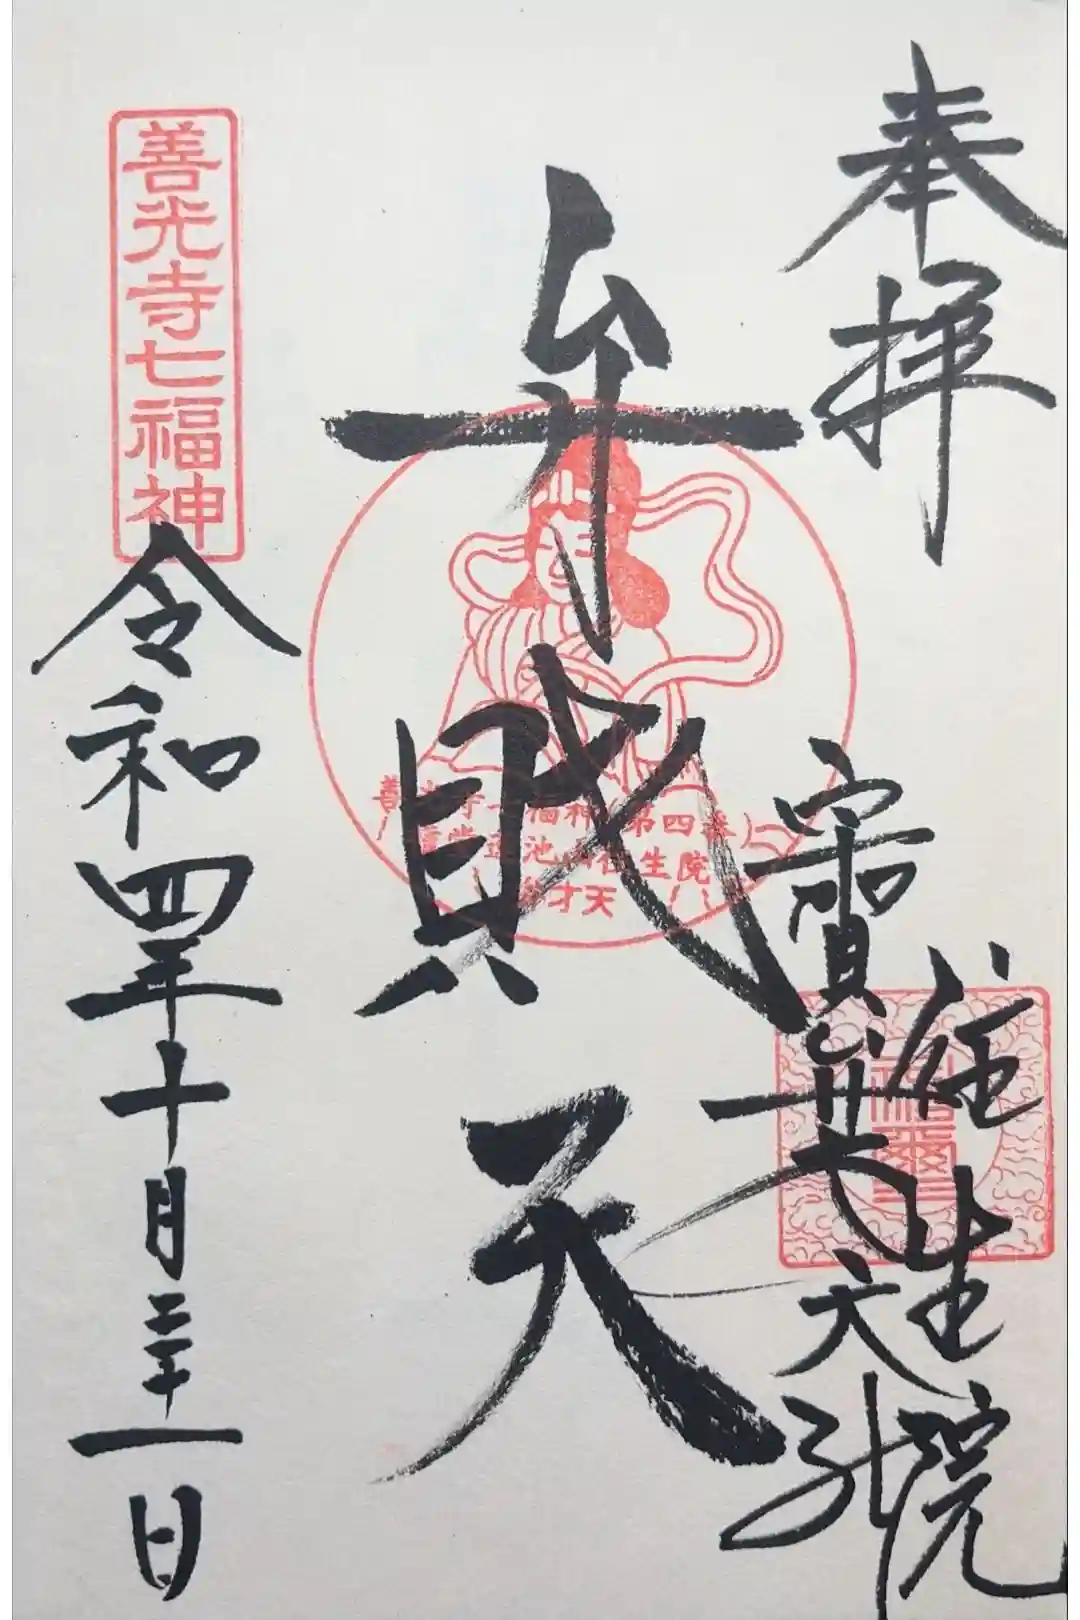 奉拝
往生院
弁財天
善光寺七福神(第四番)
蓮池山往生院
弁才天
善光寺七福神
令和四年十月三十一日